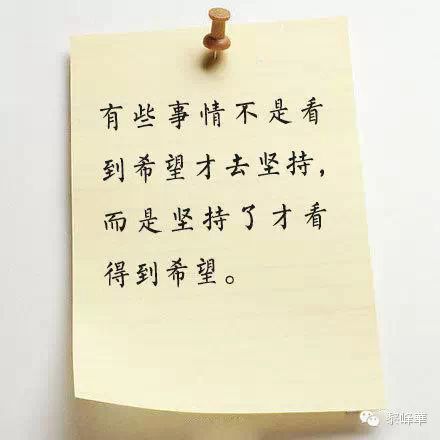 有些事情不是看
到希望才去坚持，
而是坚持了才看
得到希望。
黎峰華